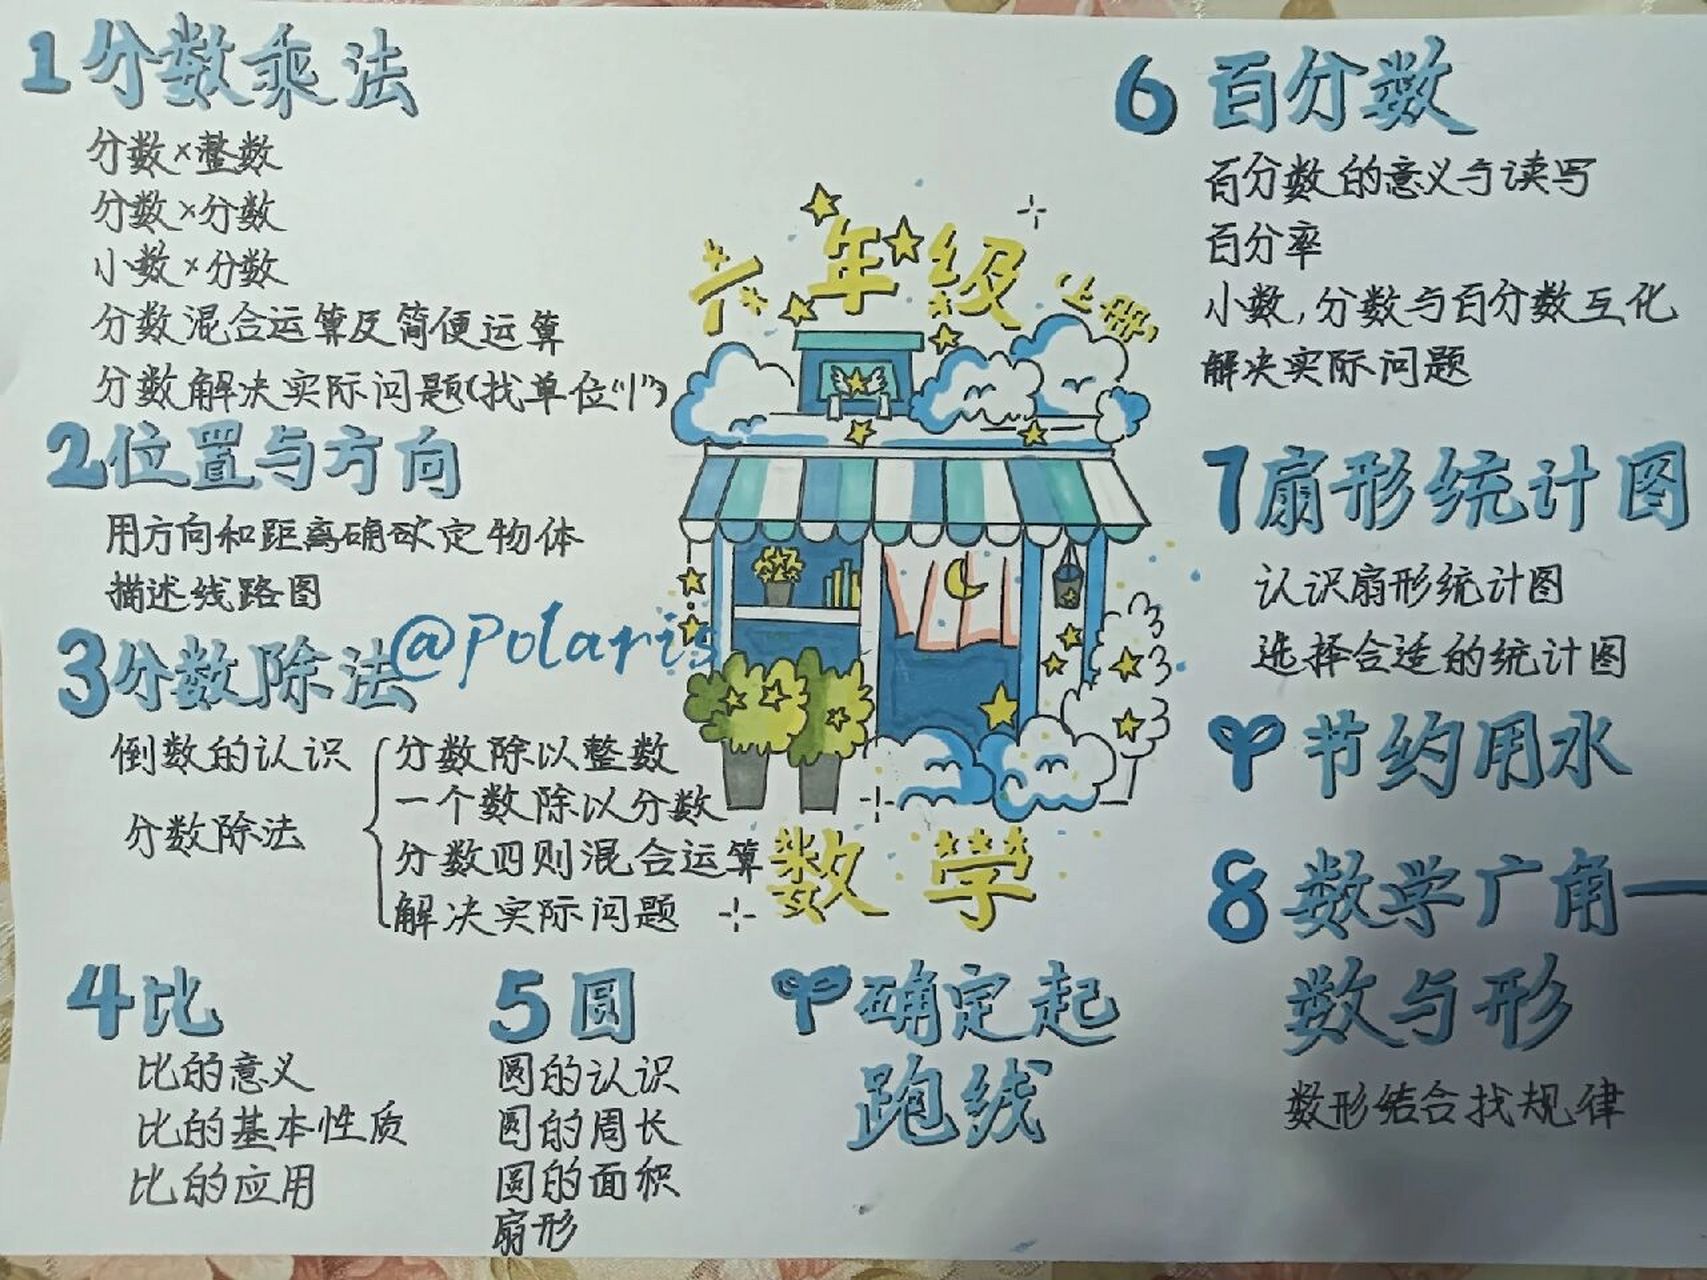 1 分数乘法
分数×整数
分数×分数
小数×分数
分数混合运算及简便运算
分数解决实际问题(找单位“1”)
2 位置与方向
用方向和距离确定物体
描述线路图
3 分数除法
倒数的认识
分数除法
分数除以整数
一个数除以分数
分数四则混合运算
解决实际问题
4 比
比的意义
比的基本性质
比的应用
5 圆
圆的认识
圆的周长
圆的面积
扇形
六年级(上册)
@Polaris
数学
确定起
跑线
6 百分数
百分数的意义与读写
百分率
小数,分数与百分数互化
解决实际问题
7 扇形统计图
认识扇形统计图
选择合适的统计图
节约用水
8 数学广角—
数与形
数形结合找规律